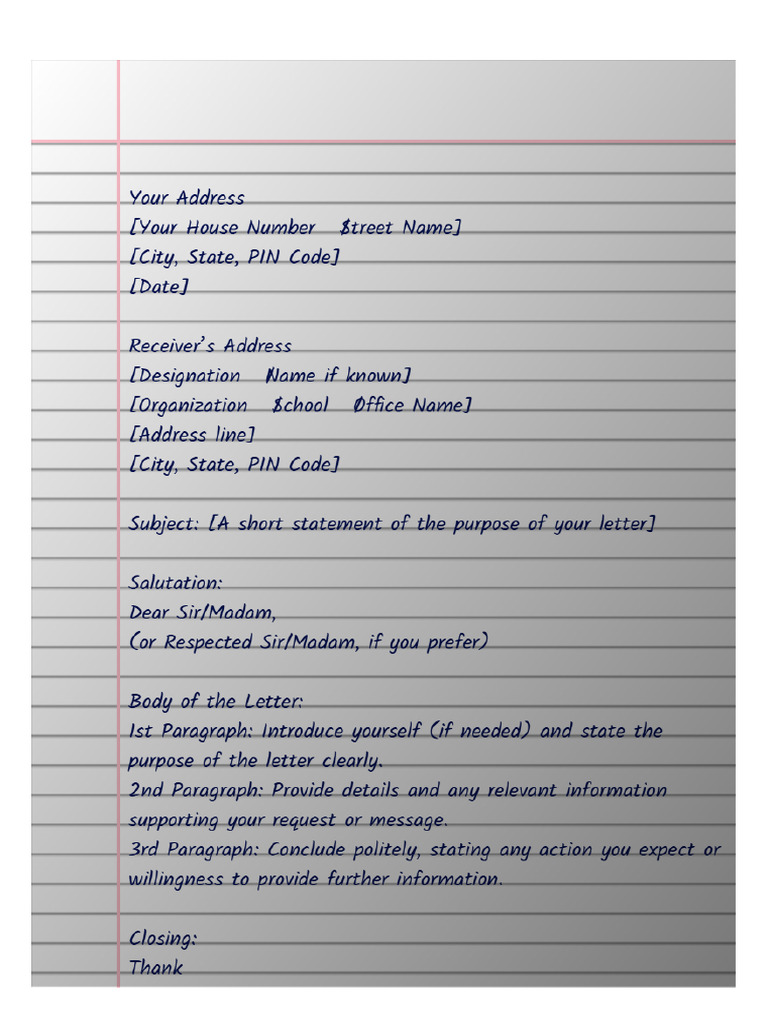 Your Address
[Your House Number Street Name]
[City, State, PIN Code]
[Date]
Receiver's Address
[Designation Name if known]
[Organization School Office Name]
[Address line]
[City, State, PIN Code]
Subject: [A short statement of the purpose of your letter]
Salutation:
Dear Sir/Madam,
(or Respected Sir/Madam, if you prefer)
Body of the Letter:
1st Paragraph: Introduce yourself (if needed) and state the
purpose of the letter clearly.
2nd Paragraph: Provide details and any relevant information
supporting your request or message.
3rd Paragraph: Conclude politely, stating any action you expect or
willingness to provide further information.
Closing:
Thank